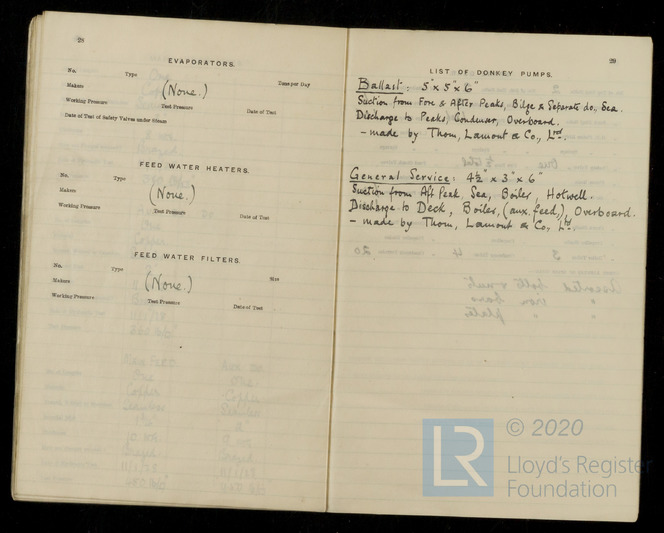 28
EVAPORATORS.
No. Type
Makers (None.) Tons per Day
Working Pressure Test Pressure Date of Test
Date of Test of Safety Valves under Steam
FEED WATER HEATERS.
No. Type
Makers (None.)
Working Pressure Test Pressure Date of Test
FEED WATER FILTERS.
No. Type
Makers (None.) Size
Working Pressure Test Pressure Date of Test
29
LIST OF DONKEY PUMPS.
Ballast: 5" x 5" x 6"
Suction from Fore & After Peaks, Bilge & Separate do, Sea.
Discharge to Peaks, Condenser, Overboard.
- made by Thom, Lamont & Co., Ltd.
General Service: 4½" x 3" x 6"
Suction from Aft Peak, Sea, Boiler, Hotwell.
Discharge to Deck, Boiler, (aux. feed,), Overboard.
- made by Thom, Lamont & Co, Ltd.
© 2020
LR
Lloyd's Register
Foundation